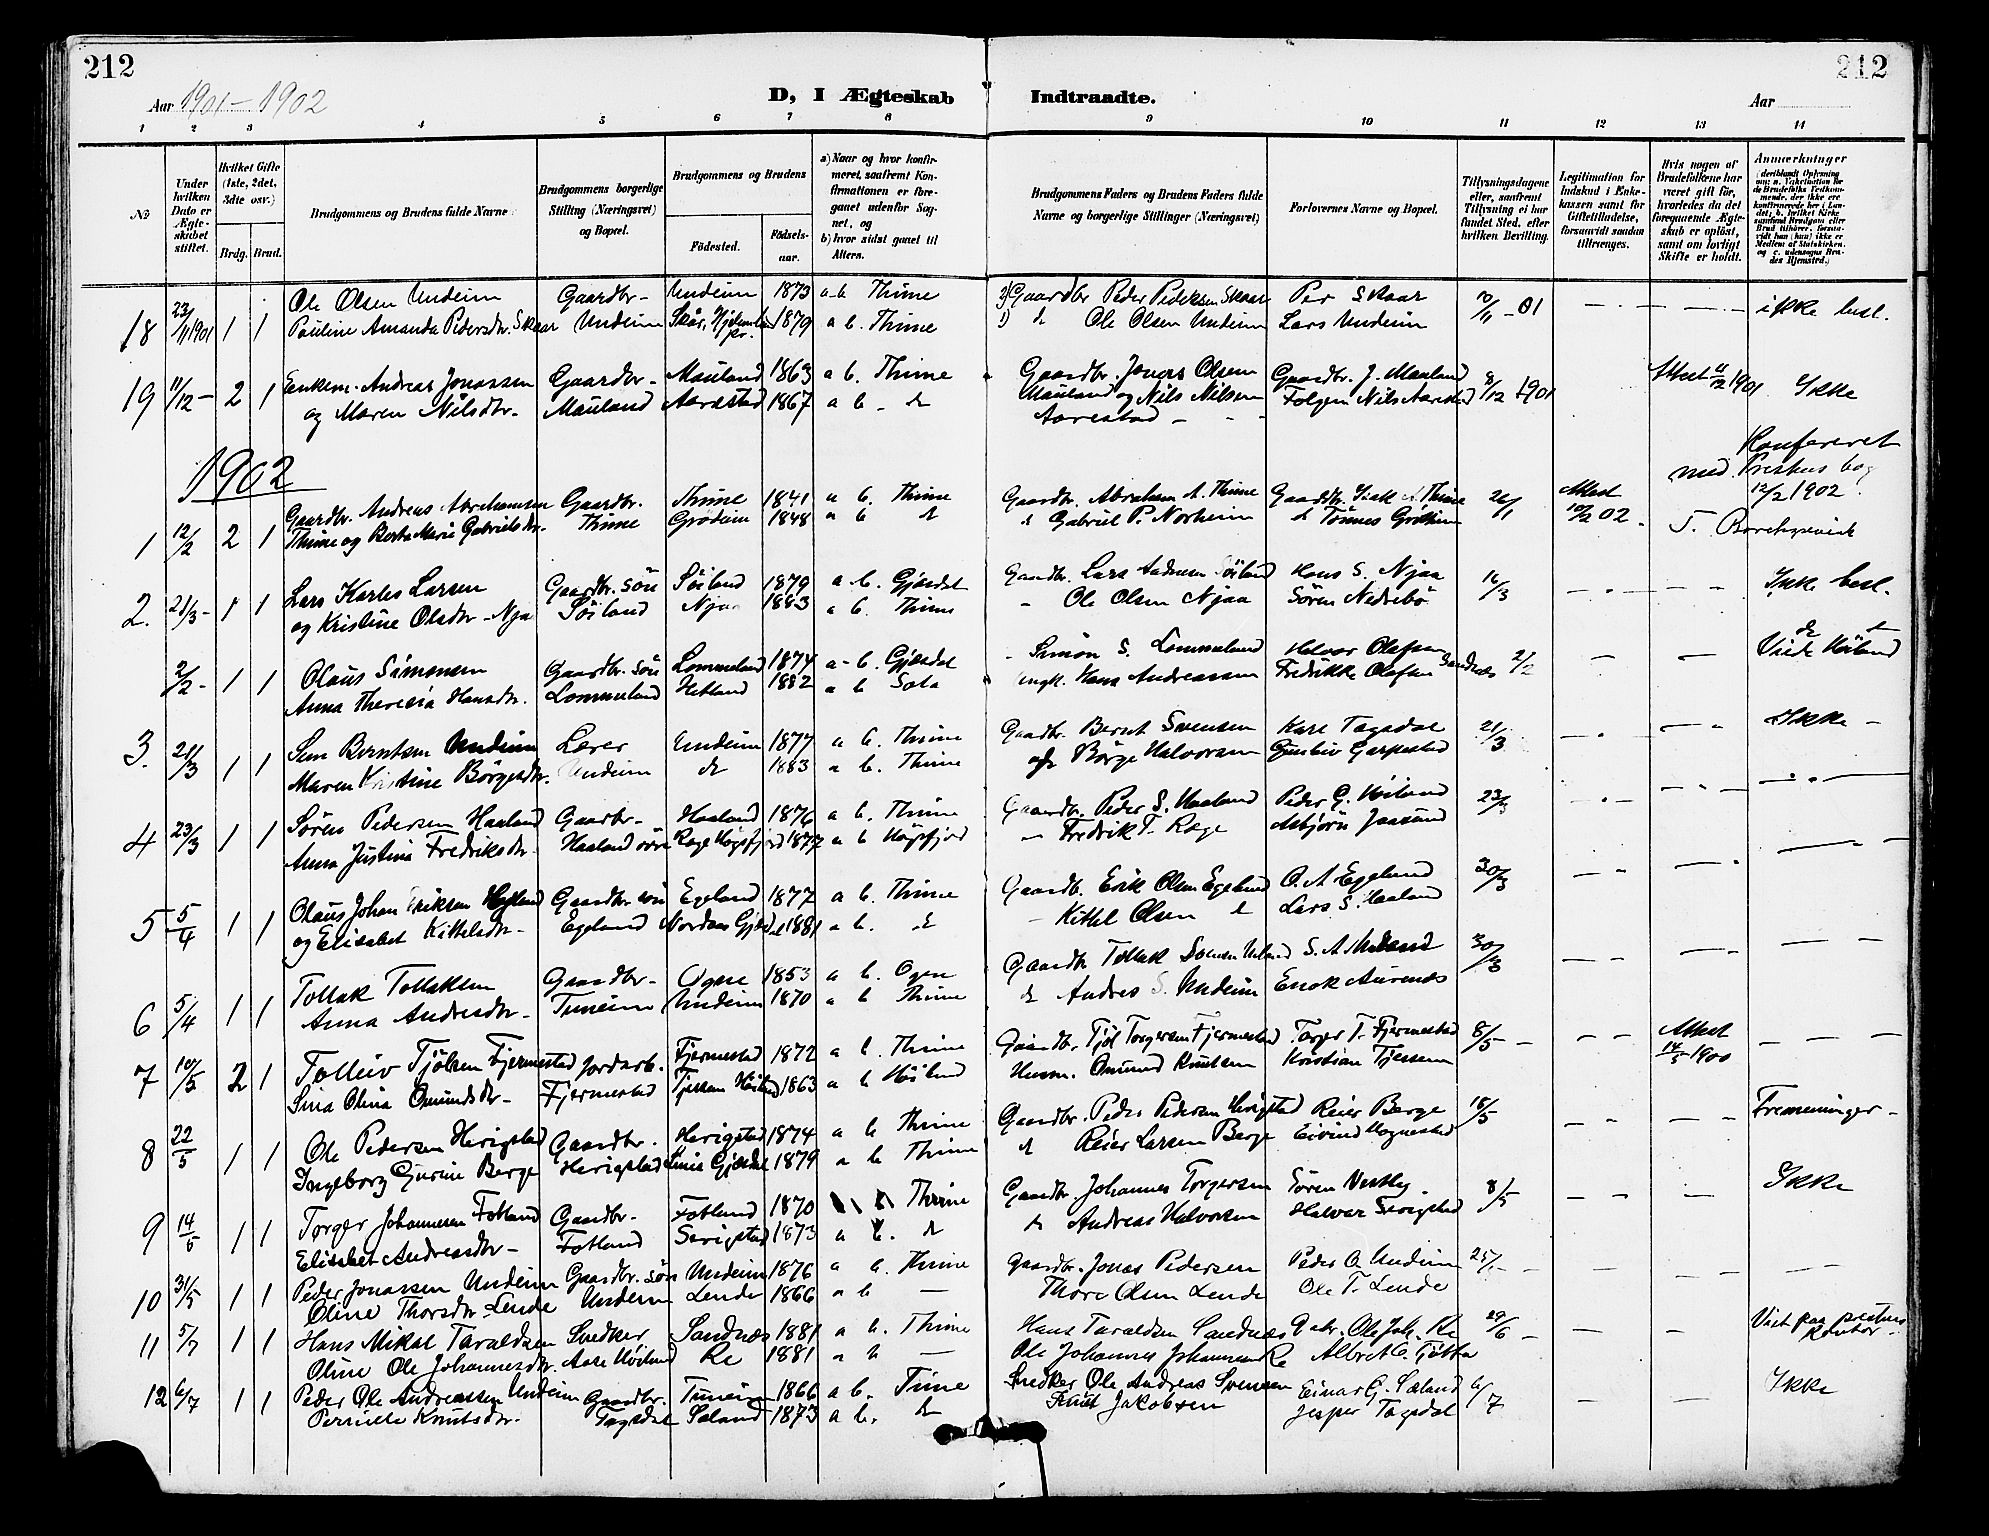 212
212
Aar 1901-1902
D, I Ægteskab Indtraadte.
Aar
1 2 3 4 5 6 7 8 9 10 11 12 13 14
No
Under hvilken Dato er Ægteskabet stiftet.
Hvilket Gifte (1ste, 2det, 3die osv.)
Brdg. Brud.
Brudgommens og Brudens fulde Navne
Brudgommens borgerlige Stilling (Næringsvei) og Bopæl.
Brudgommens og Brudens
Födested. Födselsaar.
a) Naar og hvor konfirmeret, saafremt Konfirmationen er foregaaet udenfor Sognet, og
b) hvor sidst gaaet til Alters.
Brudgommens Faders og Brudens Faders fulde Navne og borgerlige Stillinger (Næringsvei)
Forlovernes Navne og Bopæl.
Tillysningsdagene eller, saafremt Tillysning ei har fundet Sted, efter hvilken Bevilling.
Legitimation for Indskud i Enkekassen samt for Giftetilladelse, forsaavidt saadan tiltrænges.
Hvis nogen af Brudefolkene har været gift för, hvorledes da det foregaaende Ægteskab er oplöst, samt om lovligt Skifte er holdt.
Anmærkninger
18 23/11 1901 1 1 Ole Olsen Undeim Gaardbr- Undeim 1873 a-b Thime 2) Gaardbr Peder Pedersen Skaar Per Skaar 10/11-01 ikke besl.
Pauline Amanda Pedersdtr Skaar Undeim 1879 a b. Thime 1) d Ole Olsen Undeim Lars Undeim
19 11/12- 2 1 Enkem. Andreas Jonassen Gaardbr- Mauland 1863 a b. Thime Gaardbr. Jonas Olsen Gaardbr. J. Mauland 8/12 1901 Attest 11/12 1901 Ikke
og Maren Nilsdtr- Mauland Aarestad 1867 a b - d Mauland og Nils Nilsen Nils Aarestad
Aarestad -
1902
Konfereret med Prestens bog 12/2 1902.
1 12/2 2 1 Gaardbr. Andreas Abrahamsen Gaardbr. Thime 1841 a b. Thime Gaardbr. Abraham A. Thime Gaardbr. Isak A. Thime 26/1 Attest 10/2 02.
Thime og Berta Marie Gabrielsdtr. Thime Grödeim 1848 a b d d Gabriel P. Norheim d Tönnes Grödeim
2. 21/3- 1 1 Lars Karles Larsen Gaardbr. sön Söiland 1879 a b. Gjesdal Gaardbr. Lars Andersen Söiland Hans S. Njaa 16/3 Ikke besl.
og Kristine Olsdtr - Njaa Söiland Njaa 1883 a b. Thime - Ole Olsen Njaa Sören Nedrebö
2/2- 1 1 Olaus Simonsen Gaardbr. sön Lommeland 1874 a-b. Gjesdal - Simon S. Lommeland Olafsen 2/2 Viede Höiland
Anna Theresia Hansdtr. Lommeland Hetland 1882 a b Sola Hans Andreassen Fredrikke Olafsen Sandnæs
3. 21/3 1 1 Sem Berntsen Undeim Lærer Undeim 1877 a b. Thime Gaardbr. Bernt Svensen Karl Tagedal 21/3 Ikke -
Maren Kristine Börgesdtr. Undeim d 1883 a b. Thime d Börge Halvorsen Gustav Garpestad
4 23/3 1 1 Sören Pedersen Haaland Gaardbr- Haaland 1876 a b. Thime Gaardbr. Peder S. Haaland Peder G. Höiland 23/3
Anna Justina Fredriksdtr- Haaland Rage Högsfjord 1877 a b Högsfjord - Fredrik T. Rage Asbjörn Jaasund
5 5/4 1 1 Olaus Johan Eriksen Gaardbr. sön Egeland 1877 a b. Thime Gaardb. Erik Olsen Egeland O. A Egeland 30/3
og Elisabet Kittelsdtr- Egeland 1881 a b. d - Kittel Olsen d Lars S. Haaland
6 5/4 1 1 Tollak Tollaksen Gaardbr- Ogne 1853 a b. Ogne Gaardbr Tollak 30/3
Anna Andresdtr- Tuneim Undeim 1870 a b Thime d Andres S. Undeim Enok Aurenæs
7 10/5 2 1 Tolleiv Tjölsen Fjermestad Jordarb. Fjermestad 1872 a b. Thime Gaardbr. Tjöl Torgersen Fjermestad Torger T. Fjermestad 8/5 - Attest 14/5 1900
Sina Olina Omundsdtr- Fjermestad Höiland 1863 a b Höiland Husm. Omund Knutsen Kristian Tjessem
8 22/5 1 1 Ole Pedersen Herigstad Gaardbr. Herigstad 1874 a b Thime Gaardbr. Peder Pedersen Herigstad Reier Berge 18/5 Fremeninger -
Ingeborg Gurine Berge Herigstad Gjesdal 1879 a b Thime d Reier Larsen Berge Eivind Mognestad
9 14/5 1 1 Torger Johannesen Fotland Gaardbr- Fotland 1870 Thime Gaardbr. Johannes Torgersen Sören Vestly 8/5 Ikke
Elisabet Andreasdtr- Fotland Serigstad 1873 a b. d d Andreas Halvorsen Halvar Serigstad
10 31/5 1 1 Peder Jonassen Undeim Gaardbr. sön Undeim 1876 a b. Thime Gaardbr. Jonas Pedersen Peder O. Undeim 25/
Oline Thorsdtr Lende Undeim Lende 1866 a b - Thore Olsen Lende Ole T. Lende
11 5/7 1 1 Hans Mikal Taraldsen Snedker Sandnæs 1881 a b. Thime Hans Taraldsen Sandnæs Ole Joh. Re 29/6 Viet paa prestens kontor -
Oline Ole Johannesdtr. Höiland Re 1881 a b - Ole Johannes Johannesen Re Albret O. Tjötta
12 6/7 1 1 Peder Ole Andreassen Undeim Gaardbr. Tuneim 1866 a b. Time Snedker Ole Andreas Svensen Einar G. Sæland 6/7 Ikke
Pernille Knutsdtr. Tagedal Sæland 1873 a b. d Knut Jakobsen Jesper Tagedal